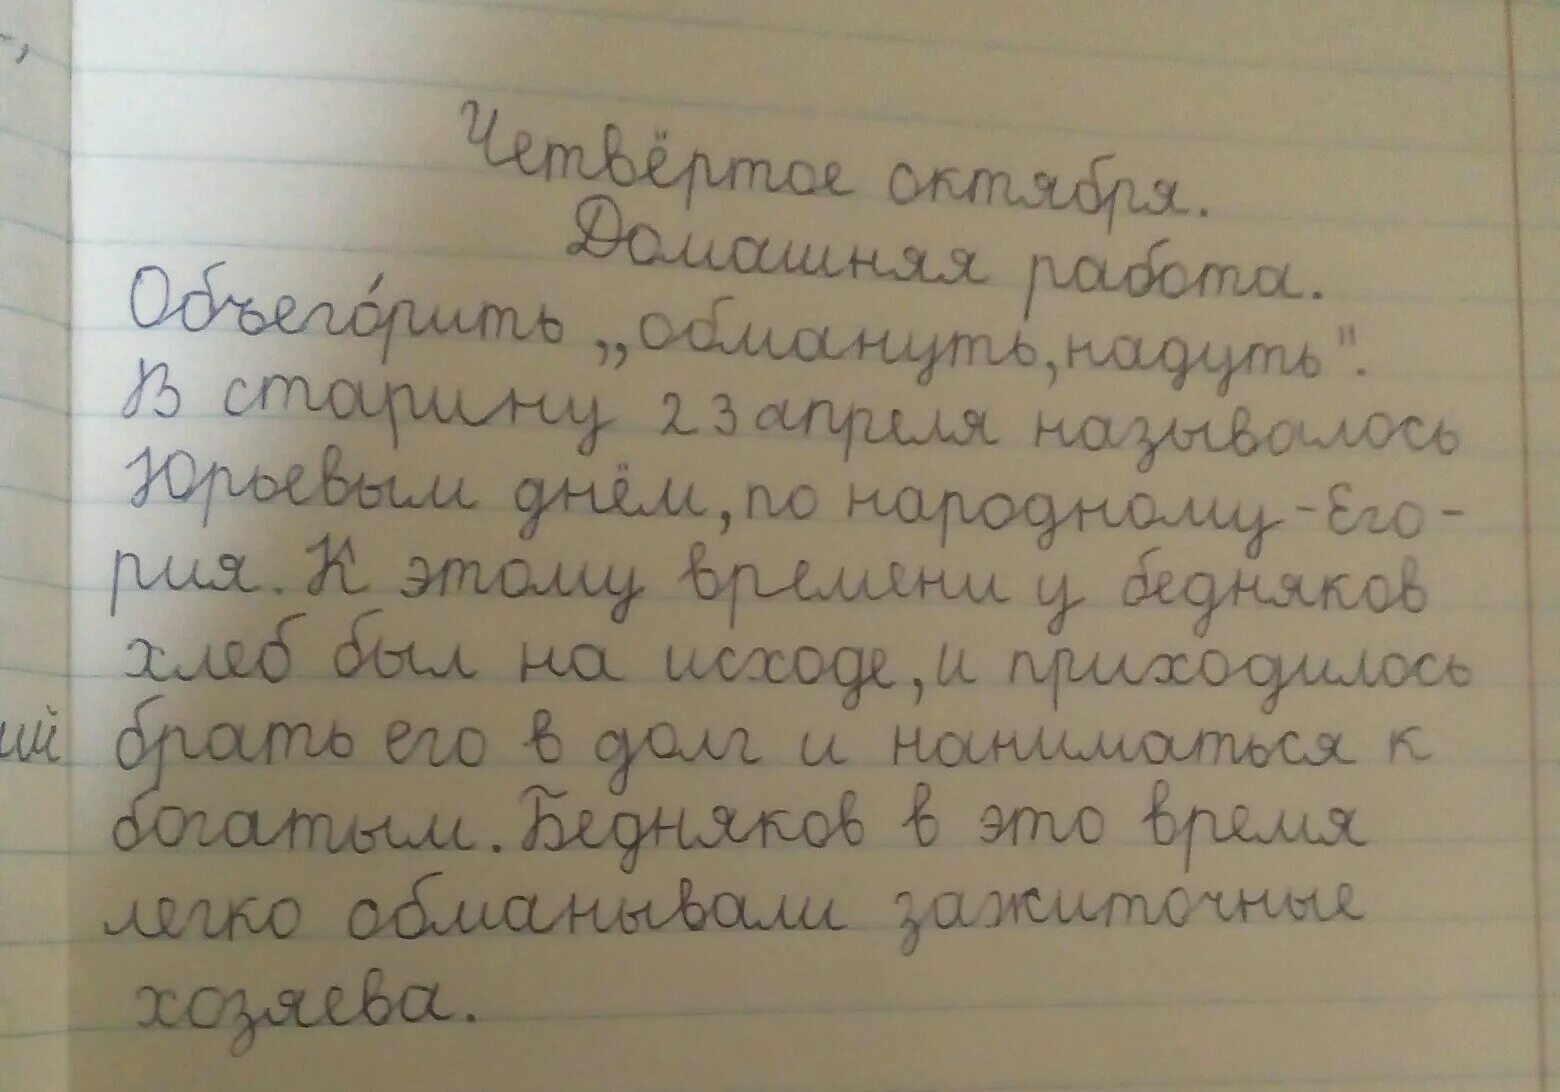 Четвёртое октября.
Домашняя работа.
Объего́рить „обмануть, надуть".
В старину 23 апреля называлось
Юрьевым днём, по народному - Его-
рия. К этому времени у бедняков
хлеб был на исходе, и приходилось
брать его в долг и наниматься к
богатым. Бедняков в это время
легко обманывали зажиточные
хозяева.
ий